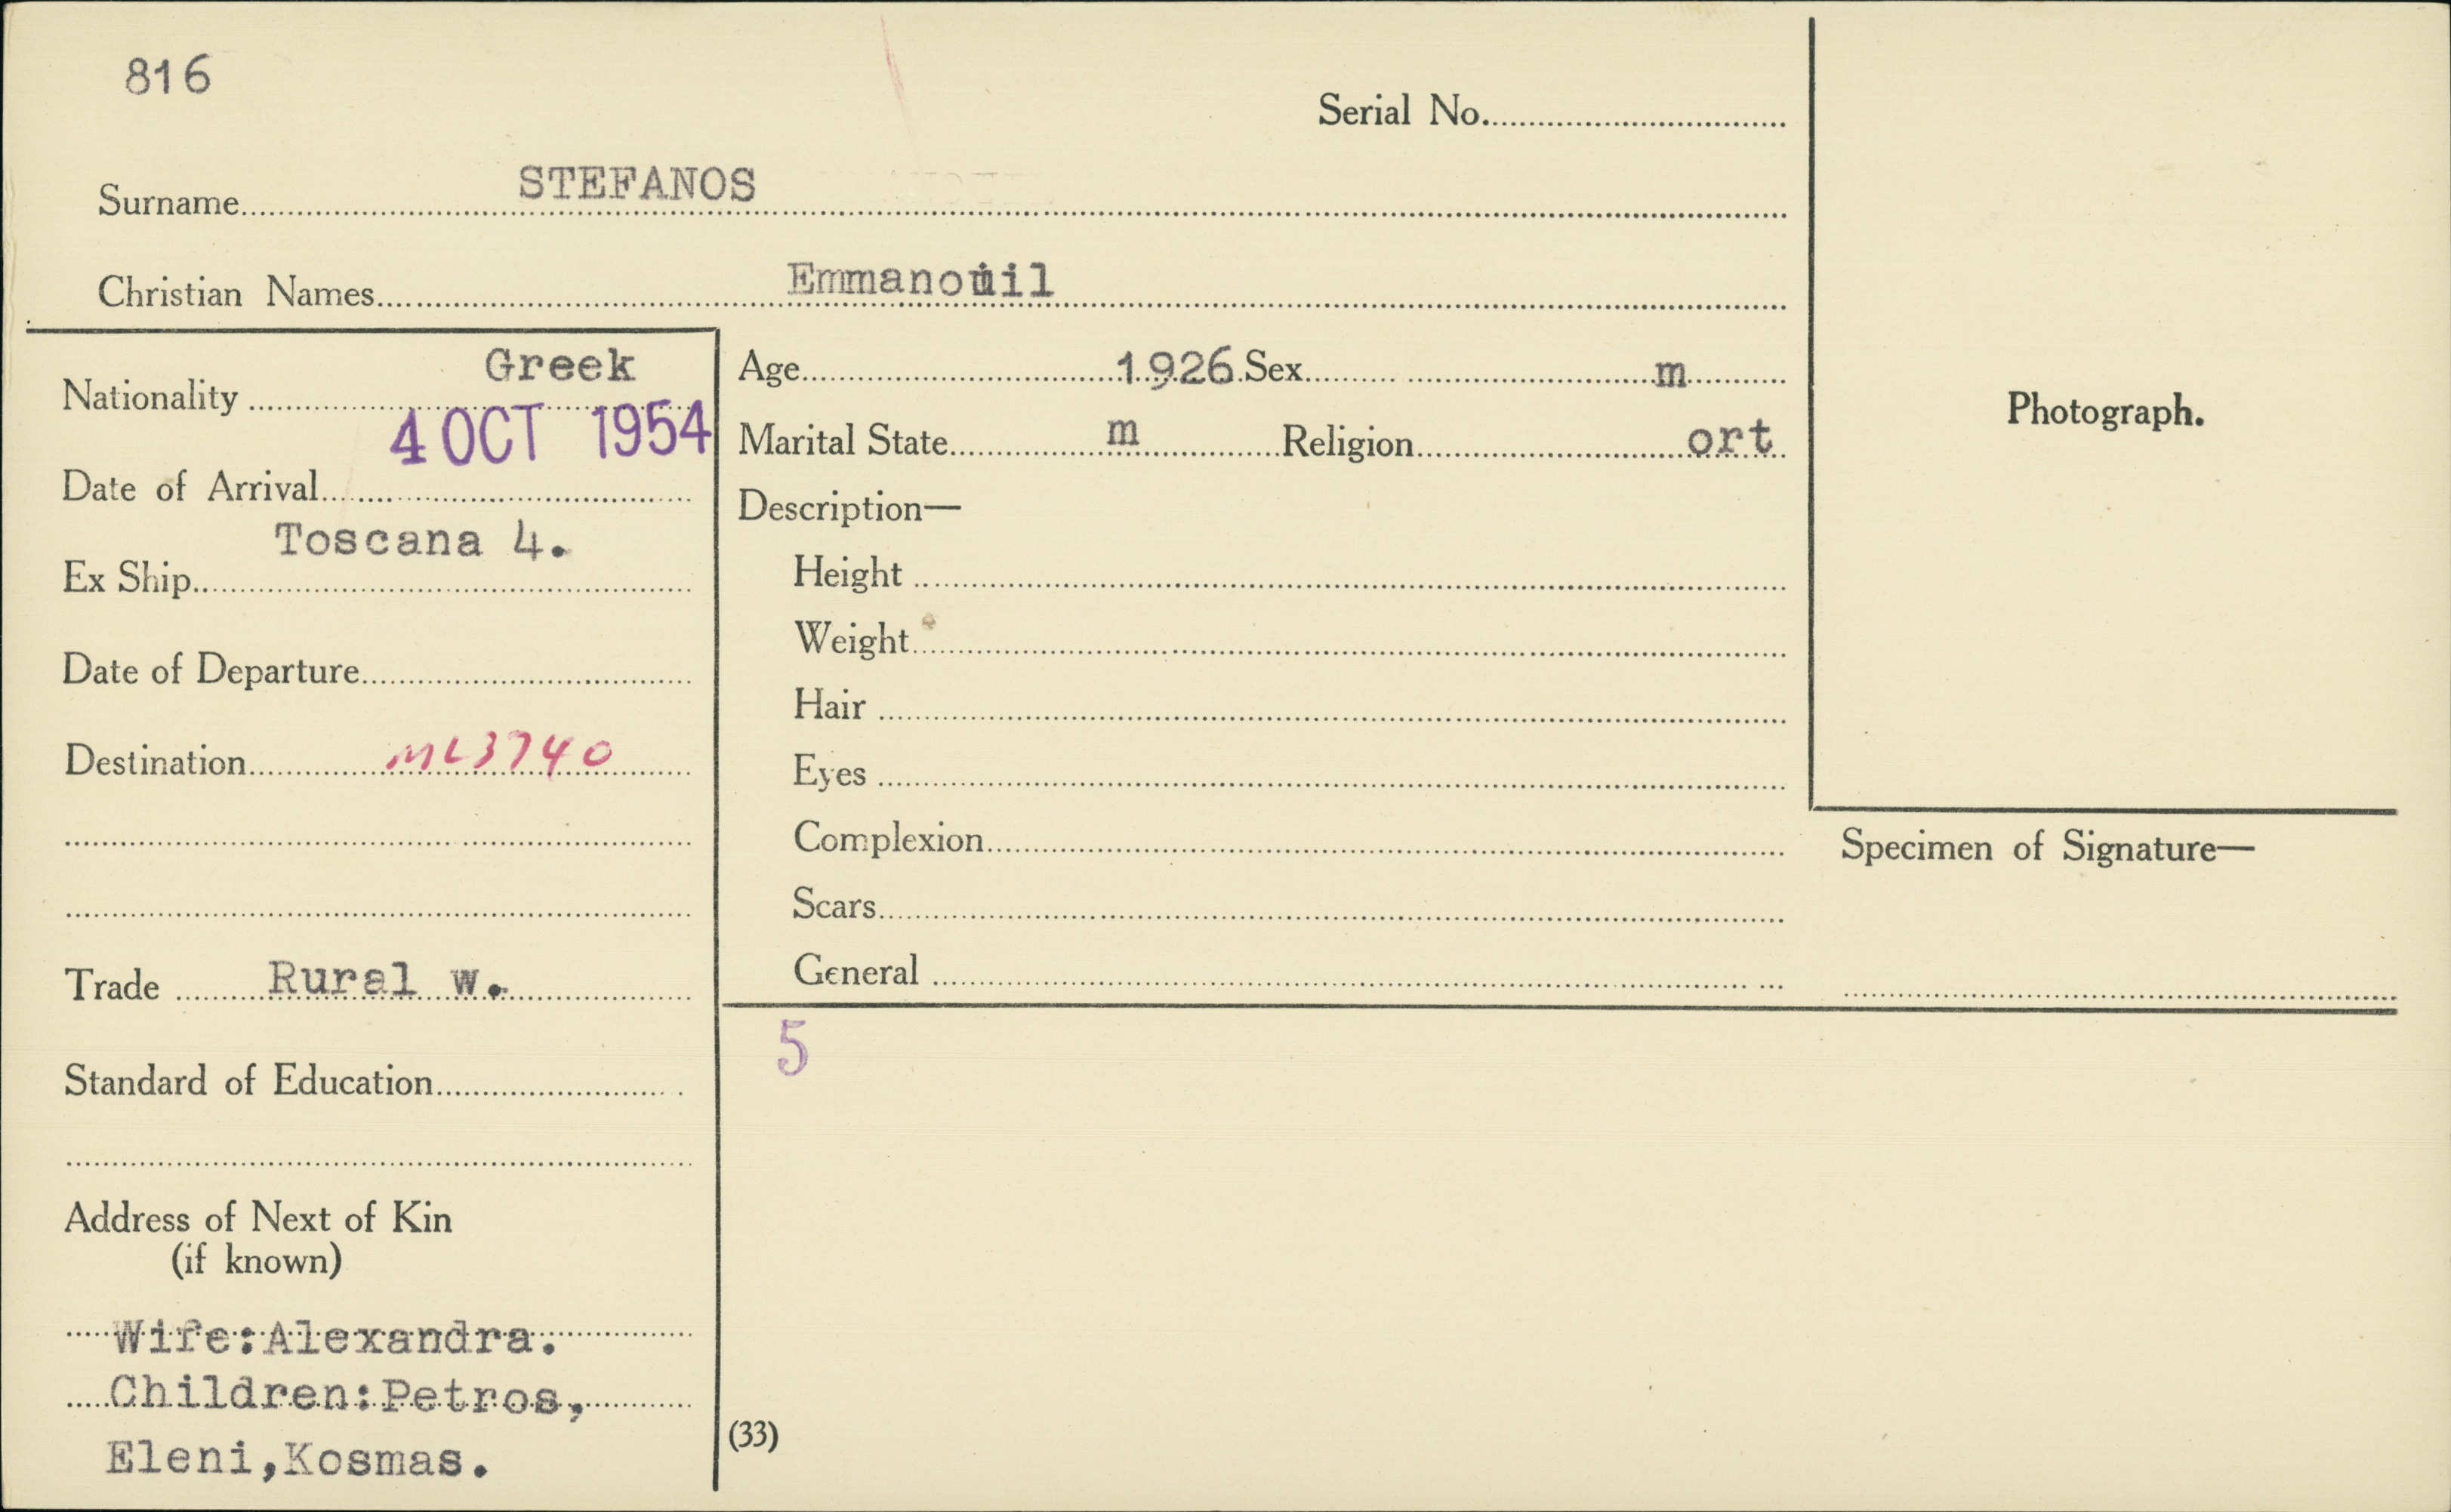 816
Serial No.
Surname STEFANOS
Christian Names Emmanouil
Nationality Greek
4 OCT 1954
Date of Arrival
Toscana 4.
Ex Ship
Date of Departure
Destination ML3740
Trade Rural w.
Standard of Education
Address of Next of Kin
(if known)
Wife:Alexandra.
Children:Petros,
Eleni,Kosmas.
Age 1926 Sex m
Marital State m Religion ort
Description—
Height
Weight
Hair
Eyes
Complexion
Scars
General
5
(33)
Photograph.
Specimen of Signature—